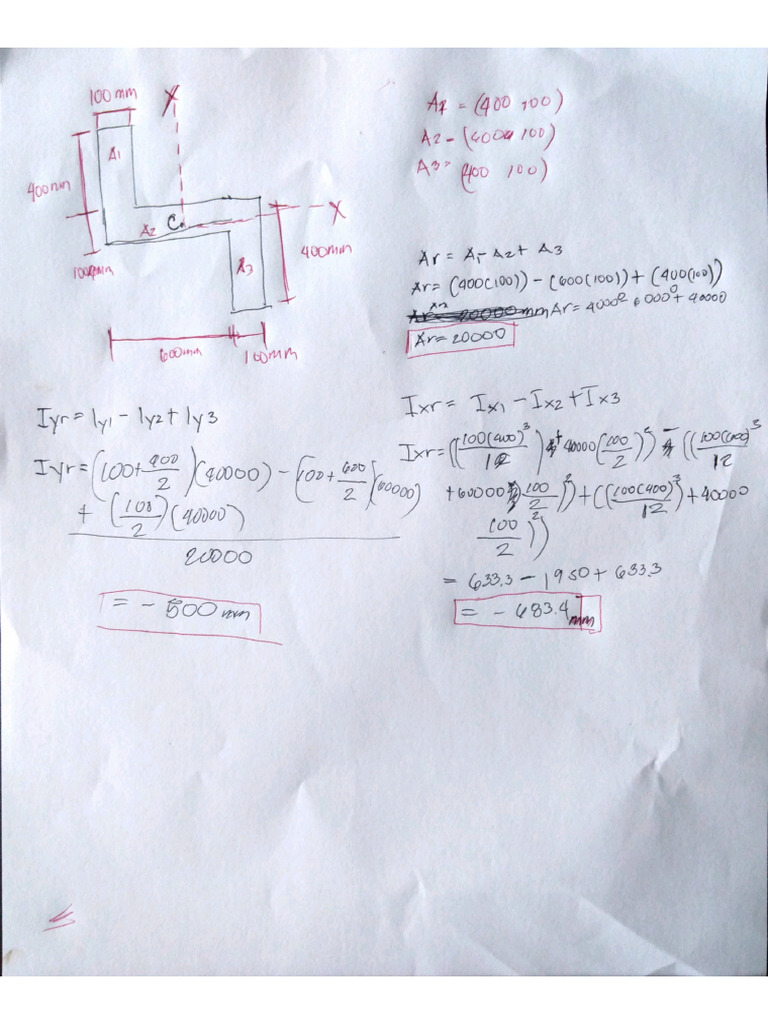 100mm
X
A1
400mm
A2 C.
X
100mm
A3
400mm
600mm
100mm
A1 = (400 100)
A2 = (600 100)
A3 = (400 100)
Ar = A1 - A2 + A3
Ar = (400(100)) - (600(100)) + (400(100))
Ar = 40000 - 60000 + 40000
Ar = 20000
Iyr = Iy1 - Iy2 + Iy3
Iyr = (100 + 400/2)(40000) - (100 + 600/2)(60000)
+ (100/2)(40000)
20000
= - 500mm
Ixr = Ix1 - Ix2 + Ix3
Ixr = ((100(400)³/12) + 40000(100/2)²) - ((100(600)³/12)
+ 60000(100/2)²) + ((100(400)³/12) + 40000
100/2)²)
= 633.3 - 1950 + 633.3
= - 683.4 mm